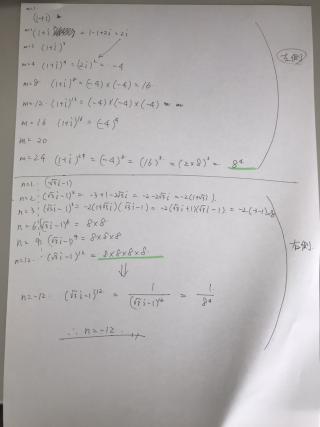 m=1
(1+i)
m=2 (1+i) = 1-1+2i = 2i
m=3 (1+i)³
m=4 (1+i)⁴ = (2i)² = -4
m=8 (1+i)⁸ = (-4)×(-4) = 16
m=12 (1+i)¹² = (-4)×(-4)×(-4) =
m=16 (1+i)¹⁶ = (-4)⁴
m=20
m=24 (1+i)²⁴ = (-4)⁶ = (16)³ = (2×8)³ = 8⁴
左側
n=1: (√3i-1)
n=2: (√3i-1)² = -3+1-2√3i = -2-2√3i = -2(1+√3i)
n=3: (√3i-1)³ = -2(1+√3i)(√3i-1) = -2(√3i+1)(√3i-1) = -2(-3-1)=8
n=6: (√3i-1)⁶ = 8×8
n=9: (√3i-1)⁹ = 8×8×8
n=12: (√3i-1)¹² = 8×8×8×8
右側
⇓
n=-12: (√3i-1)¹² = 1/(√3i-1)¹² = 1/8⁴
∴ n=-12